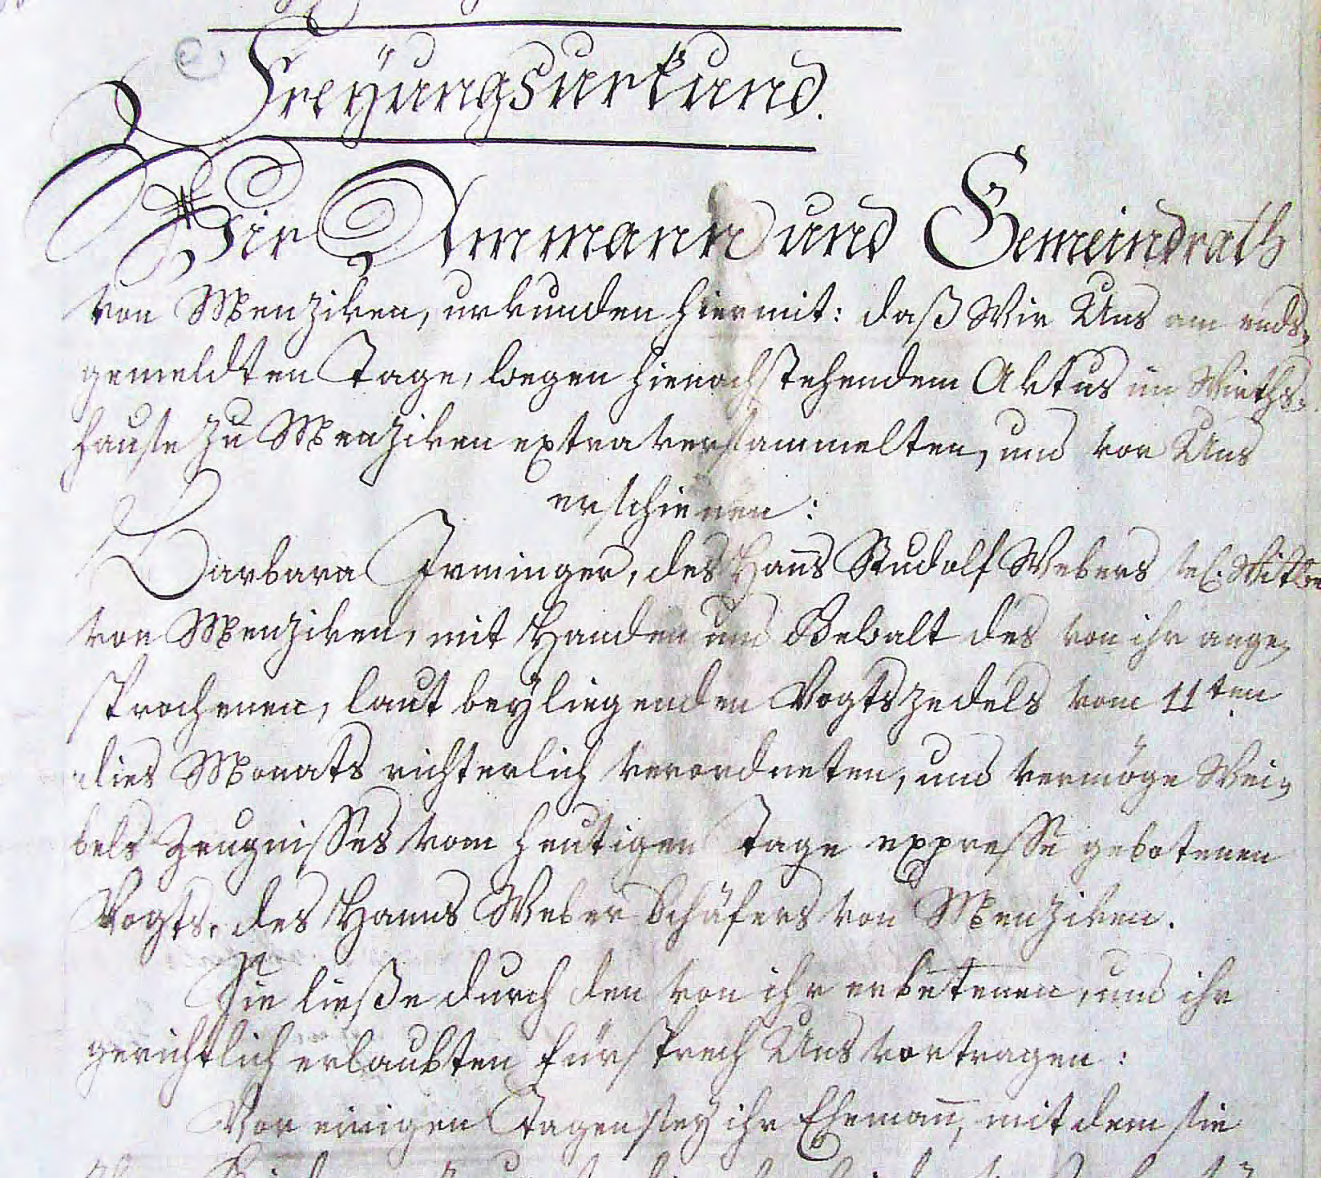 Freyungsurkund.
Wir Ammann und Gemeindrath
von Menziken, urkunden hiermit: daß Wir Uns am ends-
gemeldten Tage, wegen hienachstehendem Aktus im Wirths-
hause zu Menziken extra versammelten, und vor Uns
erschienen:
Barbara Irminger, des Hanns Rudolf Webers sel. Witwe
von Menziken, mit Handen und Gewalt des von ihr ange-
sprochenen, laut beyliegenden Vogtszedels vom 11ten
dies Monats richterlich verordneten, und vermöge Wei-
bels Zeugnisses vom heutigen Tage expresse gebotenen
Vogts, des Hanns Weber Schäfers von Menziken.
Sie ließe durch den von ihr erbetenen, und ihr
gerichtlich erlaubten Fürsprech Uns vortragen:
Vor einigen Tagen sey ihr Ehemann, mit dem sie